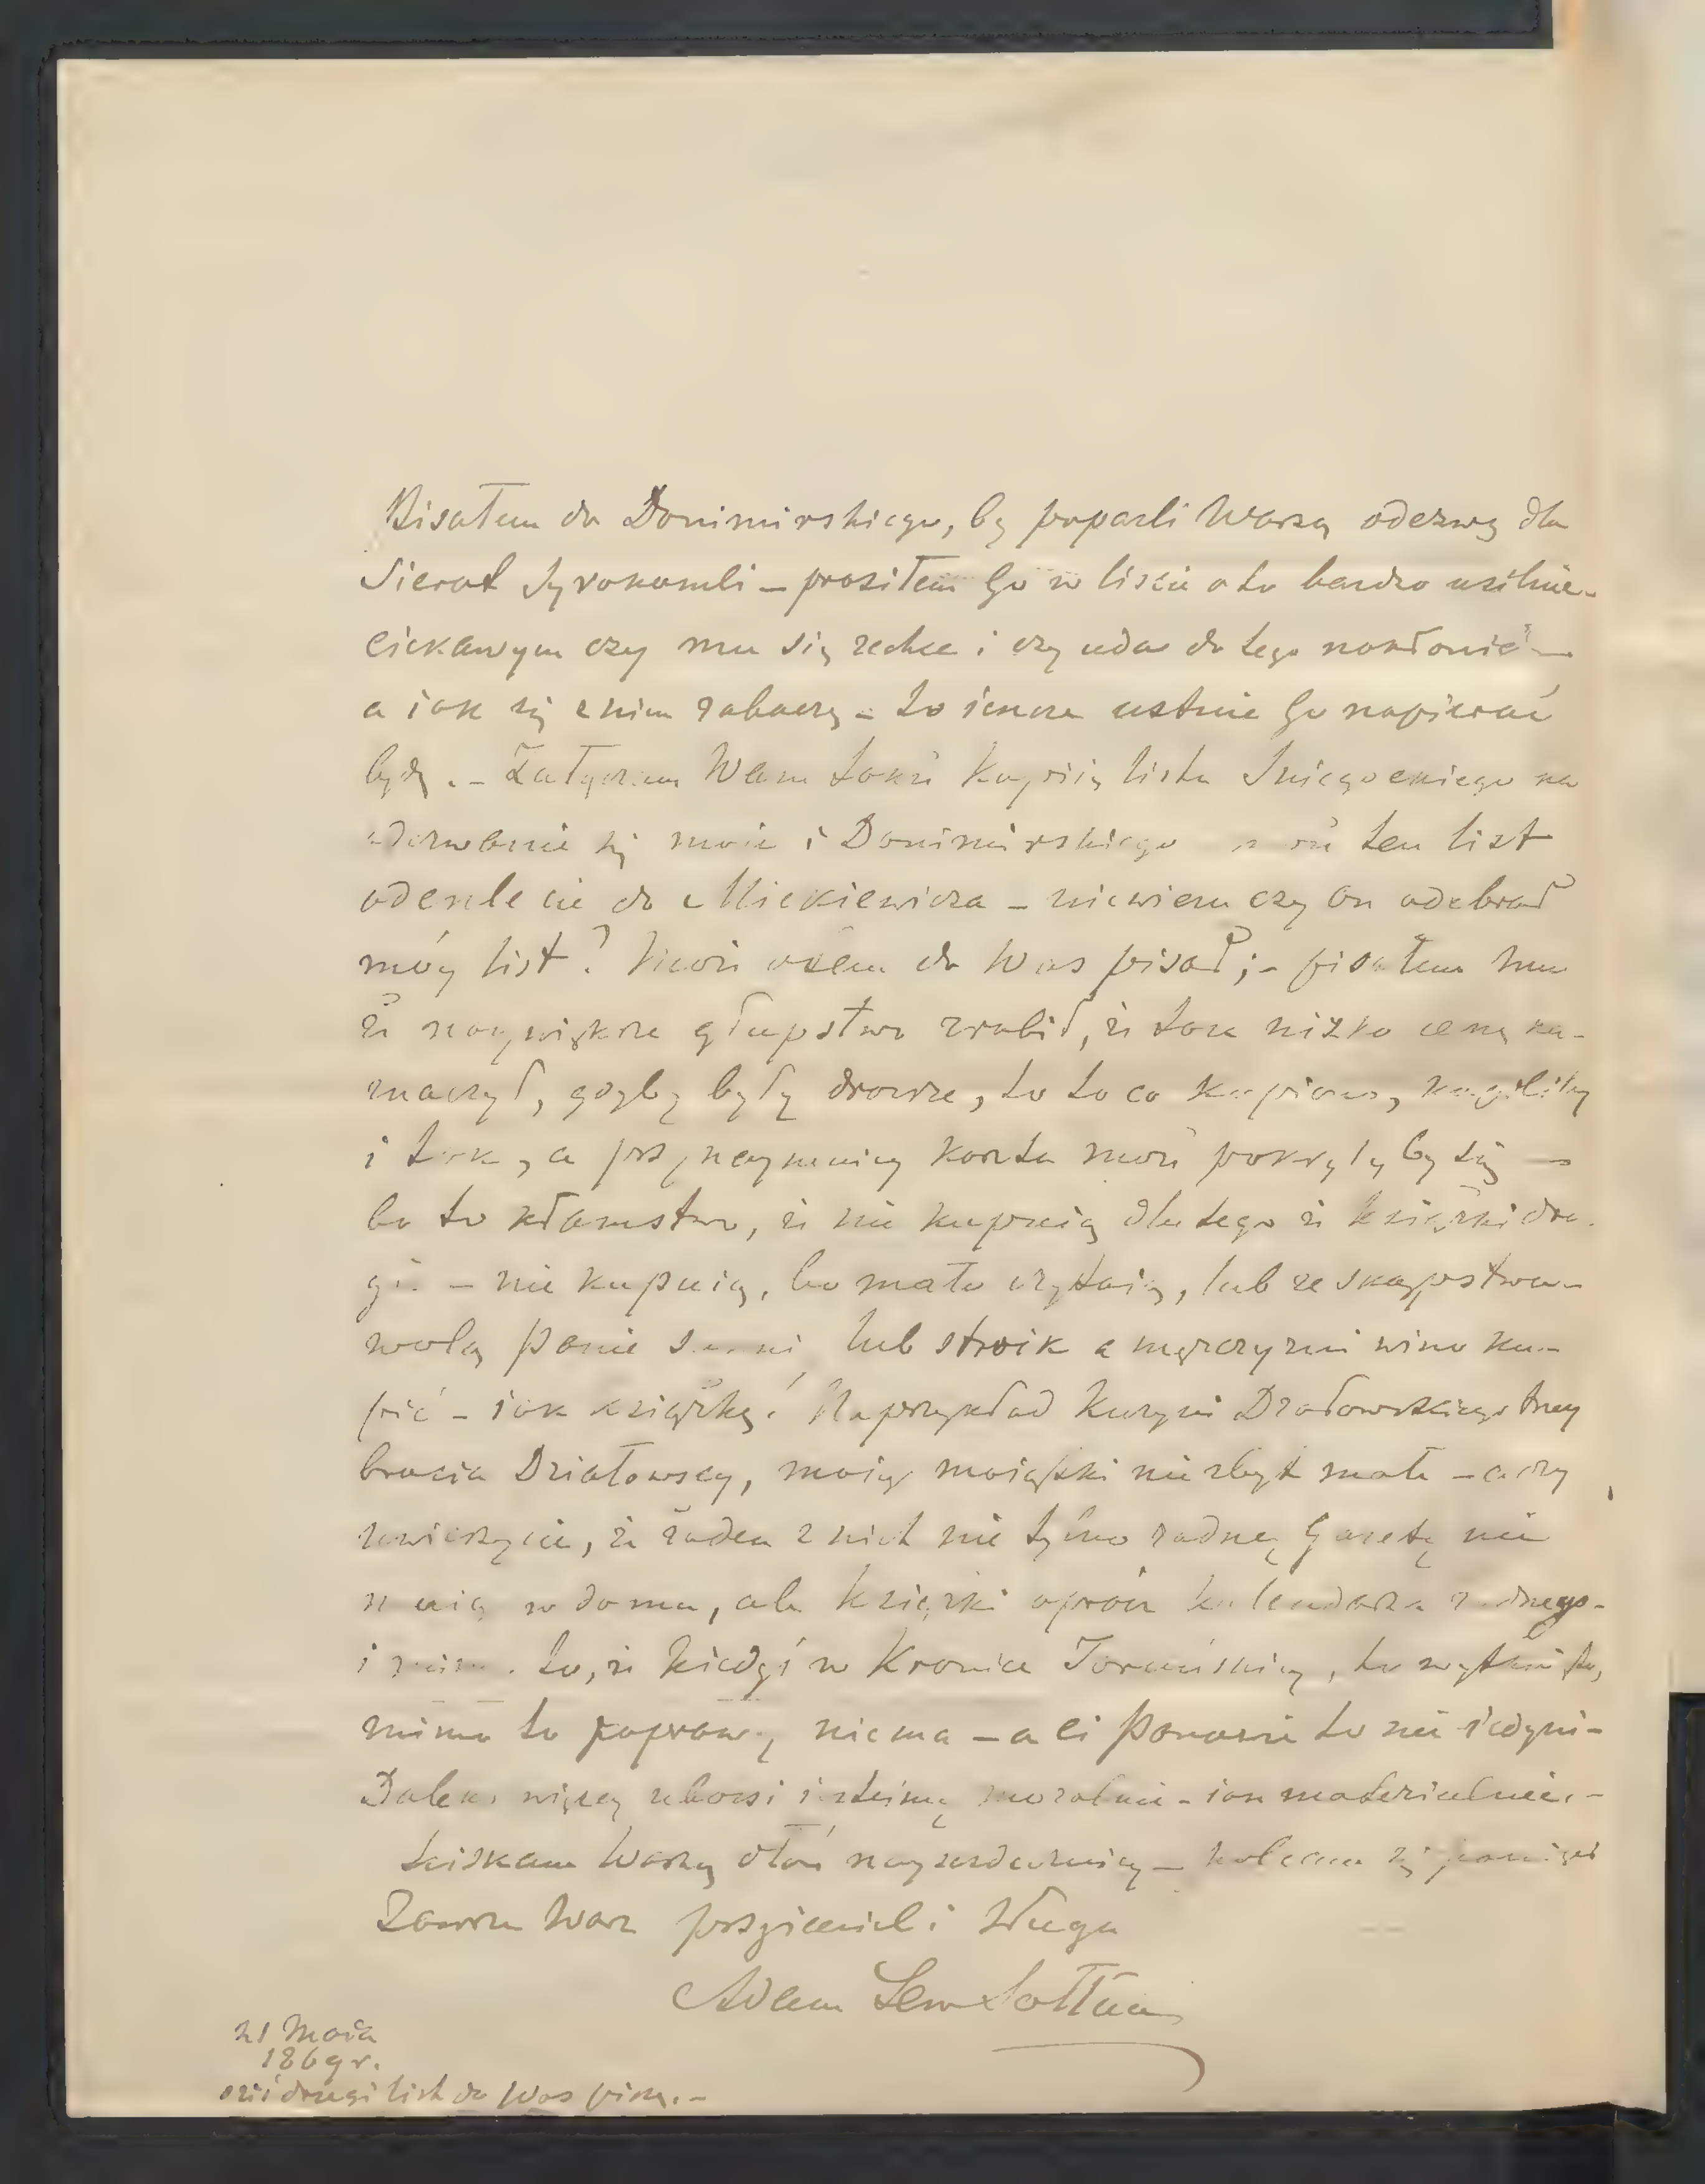 Pisałem do Donimirskiego, by poparli Waszą odezwę dla
Sierot Syrokomli – prosiłem Go w liście o to bardzo usilnie –
ciekawym czy mu się zechce i czy uda do tego nakłonić –
a iak się z nim zobaczę – to ieszcze ustnie Go napierać
będę. – Załączam Wam także koppiią listu Śniegockiego na
odezwanie się moie i Donimirskiego ten list
odeszlecie do Mickiewicza – niewiem czy on odebrał
móy list? do Was pisał; – pisałem mu
że naywiększe głupstwo zrobił, że tak nizko cenę na-
znaczył, gdyby były droższe, to to co kupiono, kupiliby
i tak, a przynaymniey koszta może pokryłyby się –
bo to kłamstwo, że nie kupuią dla tego że książki dro-
gie – nie kupuią, bo mało czytaią, lub ze skąpstwa –
wolą panie lub stroik a mężczyzni wino ku-
pić – iak książkę! Naprzykład kuzyni Działowskiego trzey
bracia Działowscy, maią maiątki nie zbyt małe – a czy
uwierzycie, że żaden z nich nie tylko żadney Gazety nie
maią w domu, ale książki oprócz kalendarza żadnego –
i mimo to, że kiedyś w Kronice Toruńskiey, to wytknięto,
mimo to poprawy niema – a ci panowie to nie iedyni –
Daleko więcey ubodzi iesteśmy moralnie – iak materialnie. –
Ściskam Waszą dłoń nayserdeczniey – polecam się pamięci
Zawsze Wasz przyiaciel i sługa
Adam Lew Sołtan
21 Maia
1869 r.
dziś drugi list do Was piszę. –